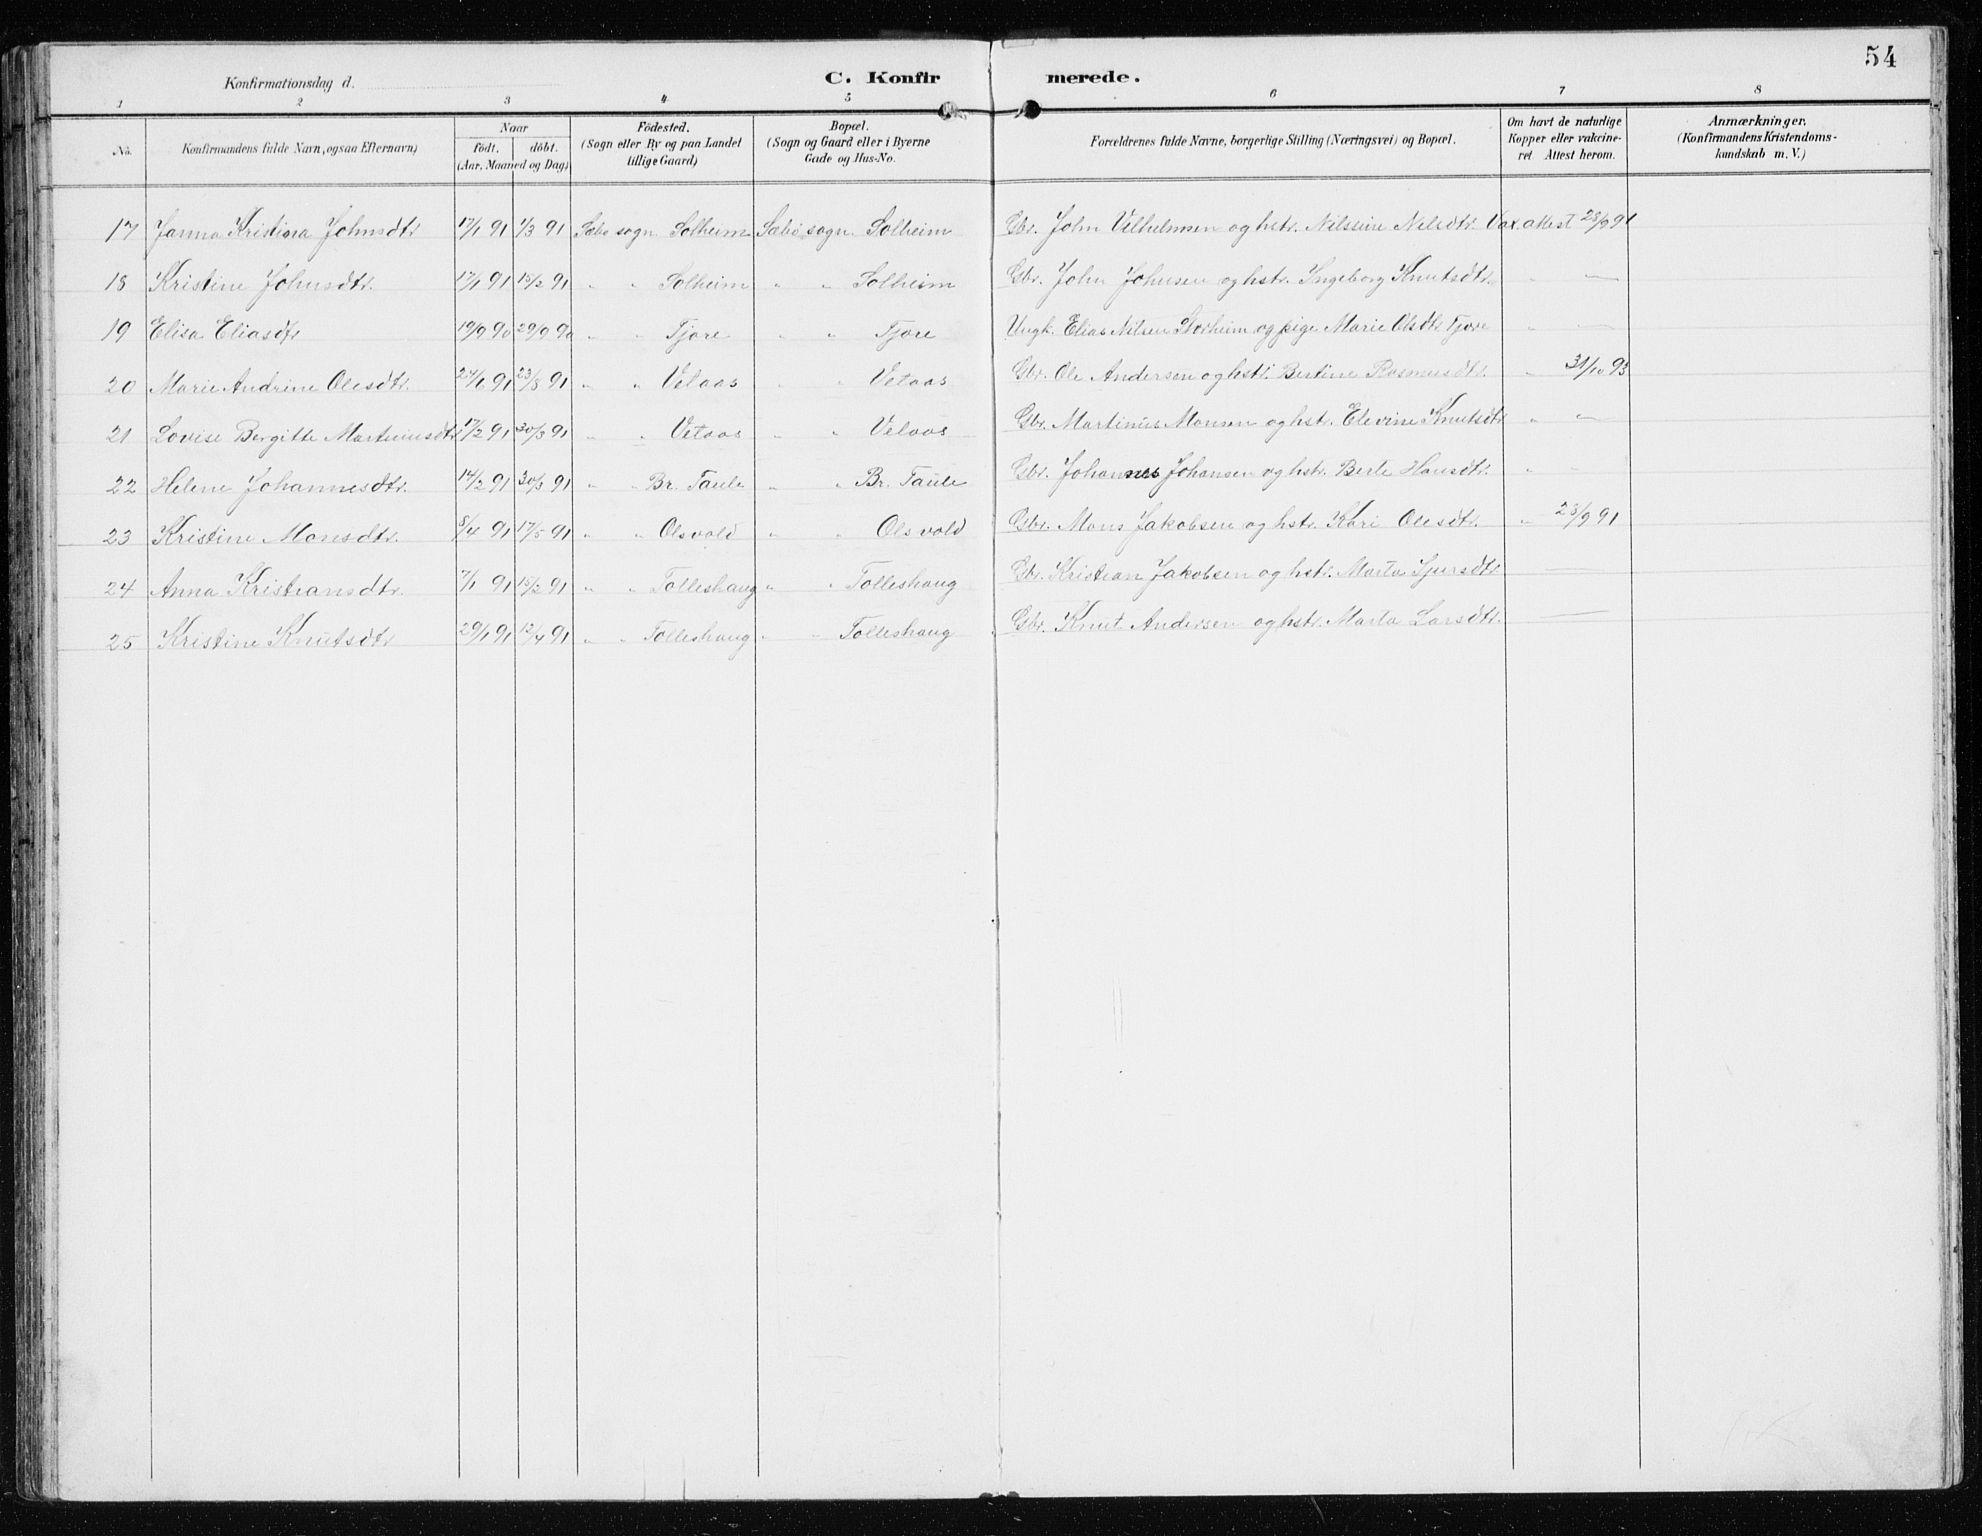 54
Konfirmationsdag d.
C. Konfirmerede.
1 2 3 4 5 6 7 8
No. Konfirmandens fulde Navn, ogsaa Efternavn) Naar födt. döbt. (Aar, Maaned og Dag) Födested. (Sogn eller By og paa Landet tillige Gaard) Bopæl. (Sogn og Gaard eller i Byerne Gade og Hus-No. Forældrenes fulde Navne, borgerlige Stilling (Næringsvei) og Bopæl. Om havt de naturlige Kopper eller vakcineret Attest herom. Anmærkninger. (Konfirmandens Kristendomskundskab m. V.)
17 Janna Kristina Johnsdtr 17/1 91 1/3 91 Sæbo sogn Solheim Sæbö sogn. Solheim Gbr. John Vilhelmsen og hstr. Nilssine Nilsdtr. Vax.attest 23/9 91
18 Kristine Johnsdtr. 17/1 91 15/2 91 " " Solheim " " Solheim Gbr. John Johnsen og hstr. Ingeborg Knutsdtr. " —
19 Elisa Eliasdtr 19/9 90 29/9 90 " " Fjore " " Fjore Ungk. Elias Nilsen Storheim og pige Marie Olsdtr Fjore " —
20 Marie Andrine Olesdtr. 24/1 91 23/8 91 " " Vetaas " " Vetaas Gbr. Ole Andersen og hstr. Bertine Rasmusdtr. " 31/10 93
21 Lovise Bergitte Martinusdtr 17/2 91 30/3 91 " " Vetaas " " Vetaas Gbr. Martinus Monsen og hstr. Elevine Knutsdtr " —
22 Helene Johannesdtr. 14/2 91 30/3 91 " " Br. Taule " " Br. Taule Gbr. Johannes Johansen og hstr. Berte Hansdtr. " —
23 Kristine Monsdtr. 8/4 91 17/5 91 " " Olsvold " " Olsvold Gbr. Mons Jakobsen og hstr. Kari Olesdtr. " 23/9 91
24 Anna Kristiansdtr. 7/1 91 15/2 91 " " Tolleshaug " " Tolleshaug Gbr. Kristian Jakobsen og hstr. Marta Sjursdtr —
25 Kristine Knutsdtr 29/1 91 12/4 91 " " Tolleshaug " " Tolleshaug Gbr. Knut Andersen og hstr. Marta Larsdtr. —